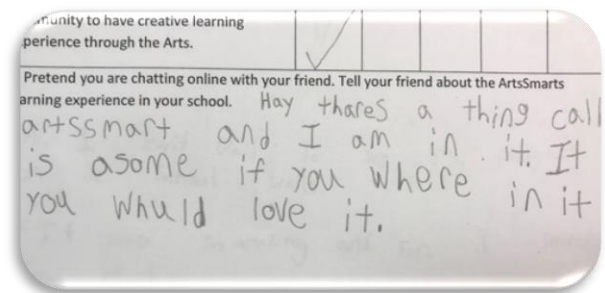 munity to have creative learning
perience through the Arts.
Pretend you are chatting online with your friend. Tell your friend about the ArtsSmarts
arning experience in your school. Hay thares a thing call
artssmart and I am in it. It
is asome if you where in it
you whuld love it.